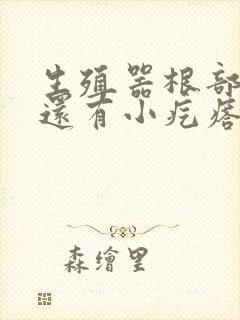 生殖器根部
還有小疙瘩
森繪里